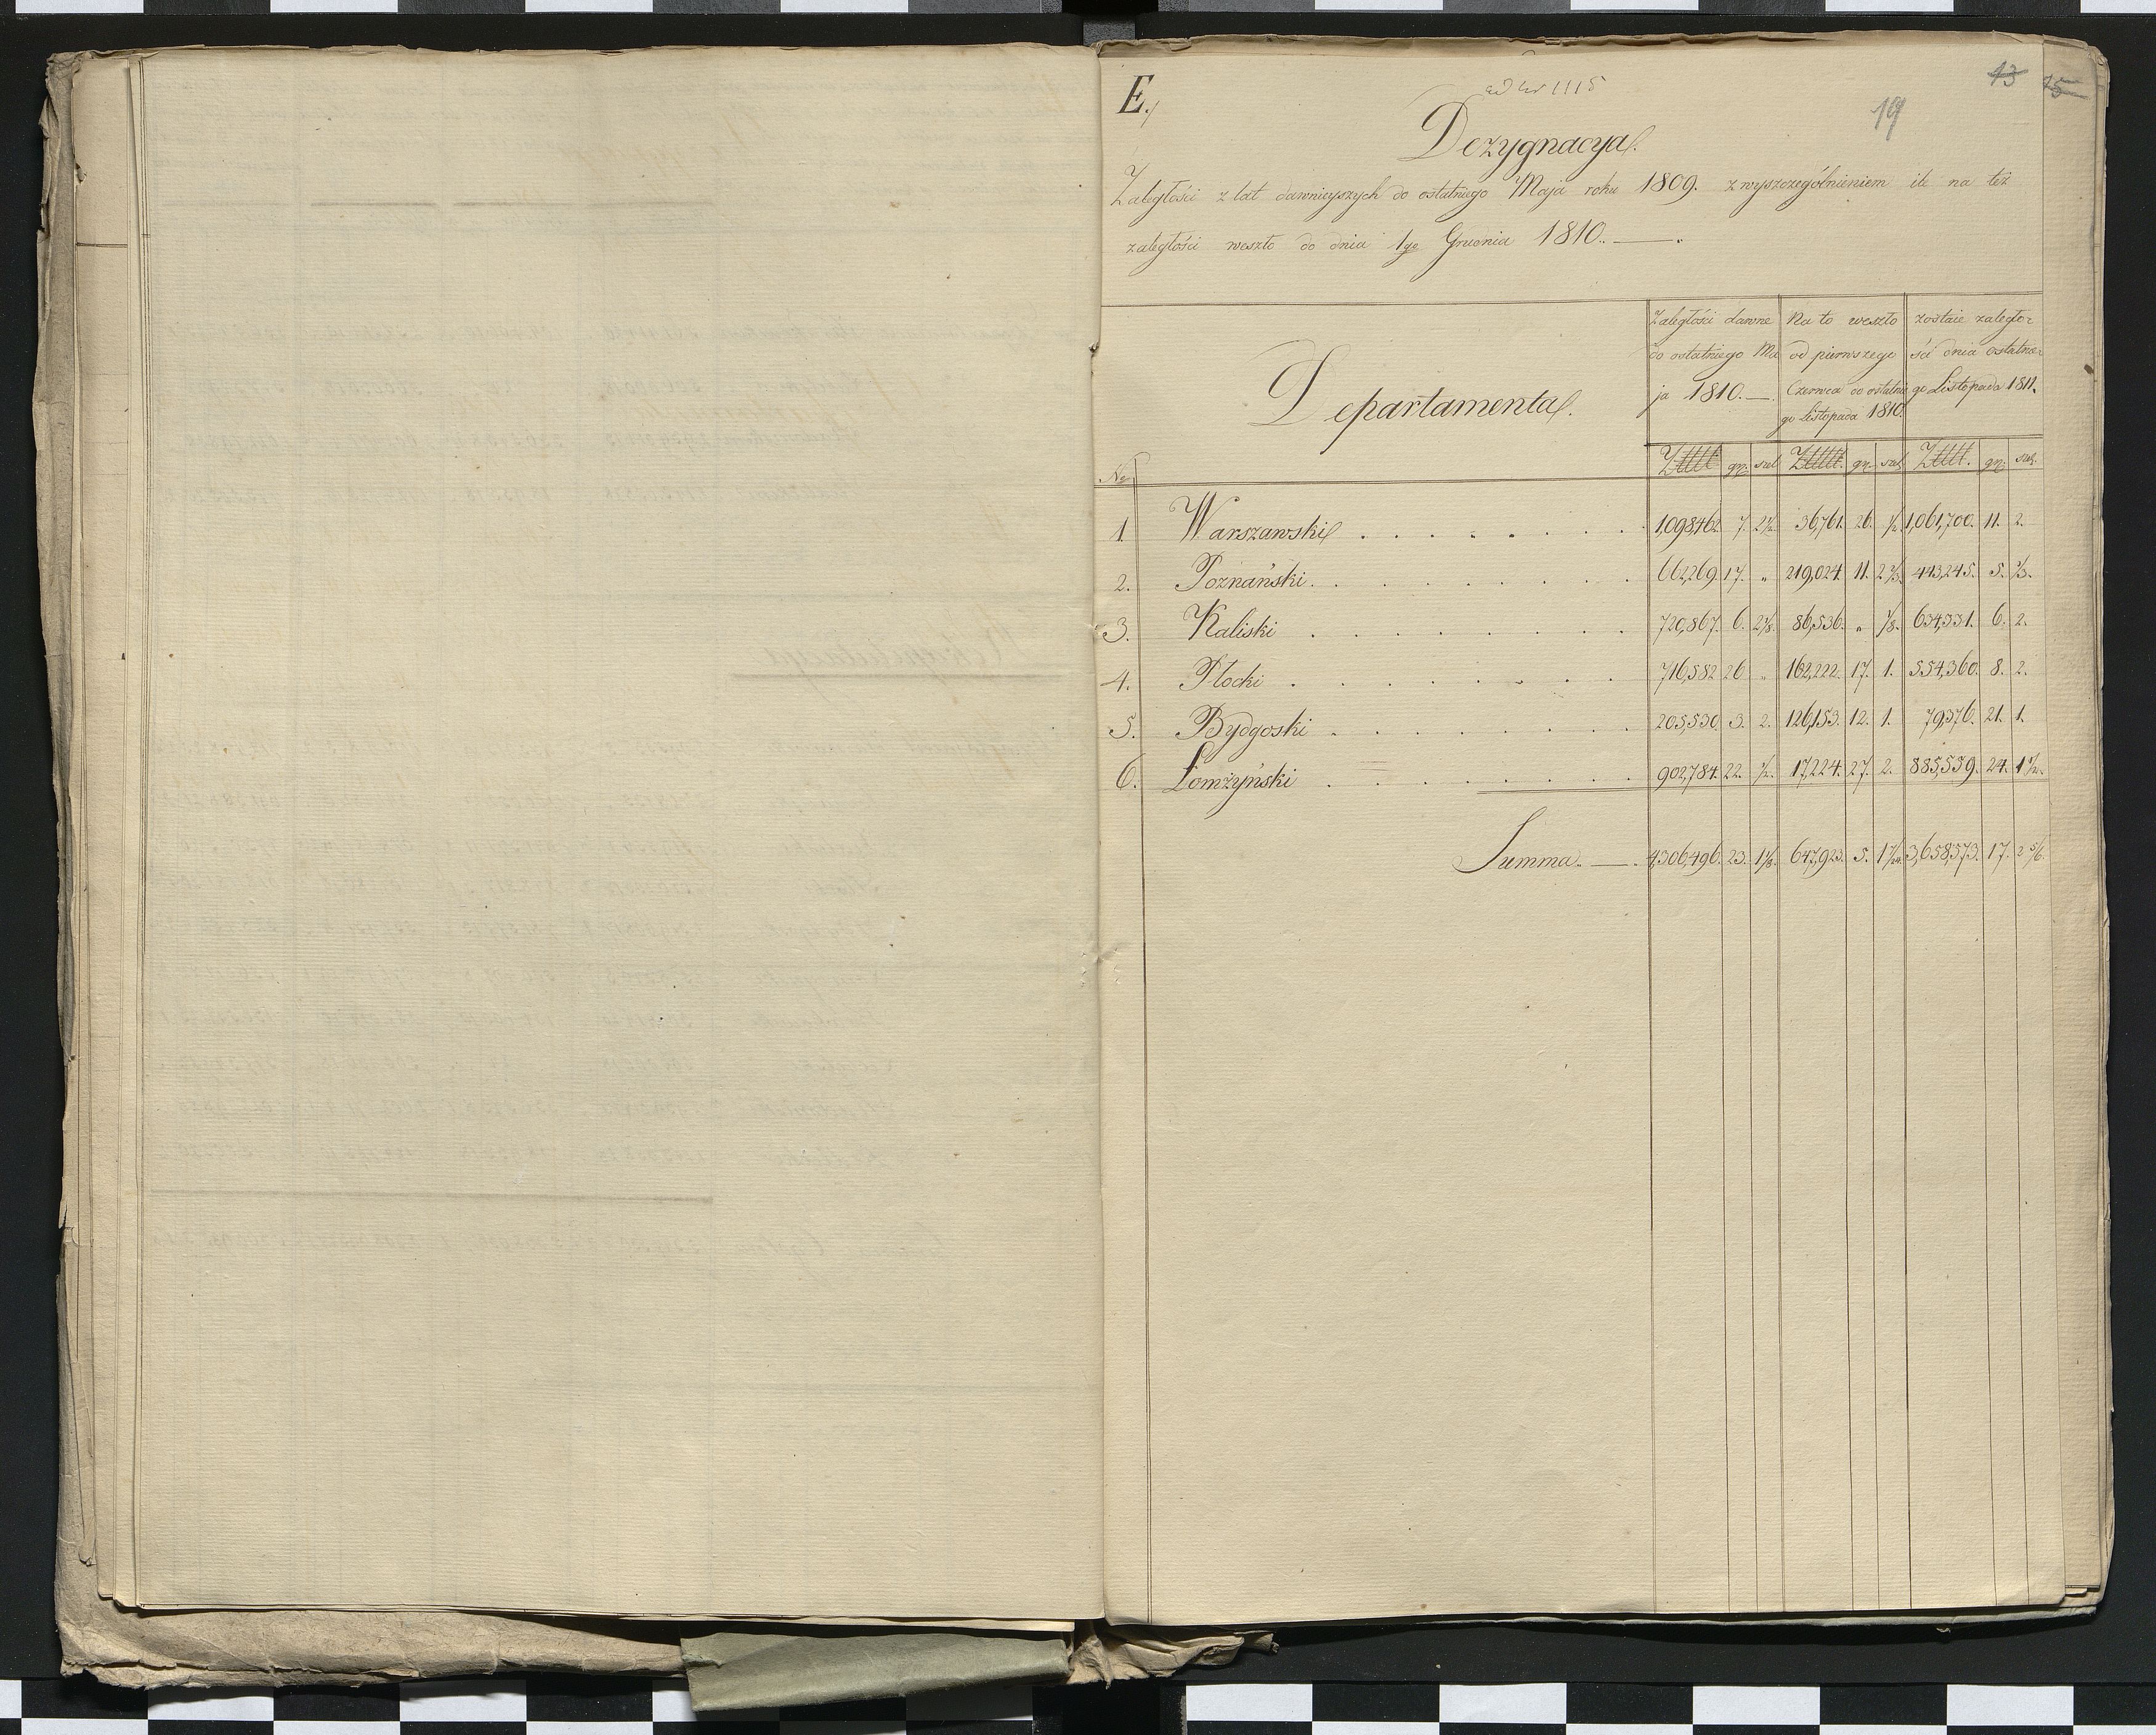 E.
13 15
19
Dezygnacya.
Zaległości z lat dawnieyszych do ostatniego Maja roku 1809. z wyszczególnieniem ile na też
zaległości weszło do dnia 1go Grudnia 1810.
Departamenta.
Zaległości dawne do ostatniego Maja 1810.
Na to weszło od pierwszego Czerwca do ostatniego Listopada 1810.
zostaie zaległości dnia ostatniego Listopada 1811.
No Złłłł gr: szel. Złłłł. gr: szel. Złłł. gr: szel.
1. Warszawski 1,098,462. 7. 2½. 36,761. 26. ½. 1,061,700. 11. 2.
2. Poznański 662,269. 17. „ 219,024. 11. 2⅔. 443,245. 5. ⅓.
3. Kaliski 720,867. 6. 2⅞. 86,536. „ ⅞. 634,331. 6. 2.
4. Płocki 716,582 26 „ 162,222. 17. 1. 554,360. 8. 2.
5. Bydgoski 205,530. 3. 2. 126,153. 12. 1. 79,376. 21. 1.
6. Łomżyński 902,784. 22. ½. 17,224. 27. 2. 885,559. 24. 1½.
Summa 4,306,496. 23. 647,923. 5. 3,658,573. 17. 2⅚.